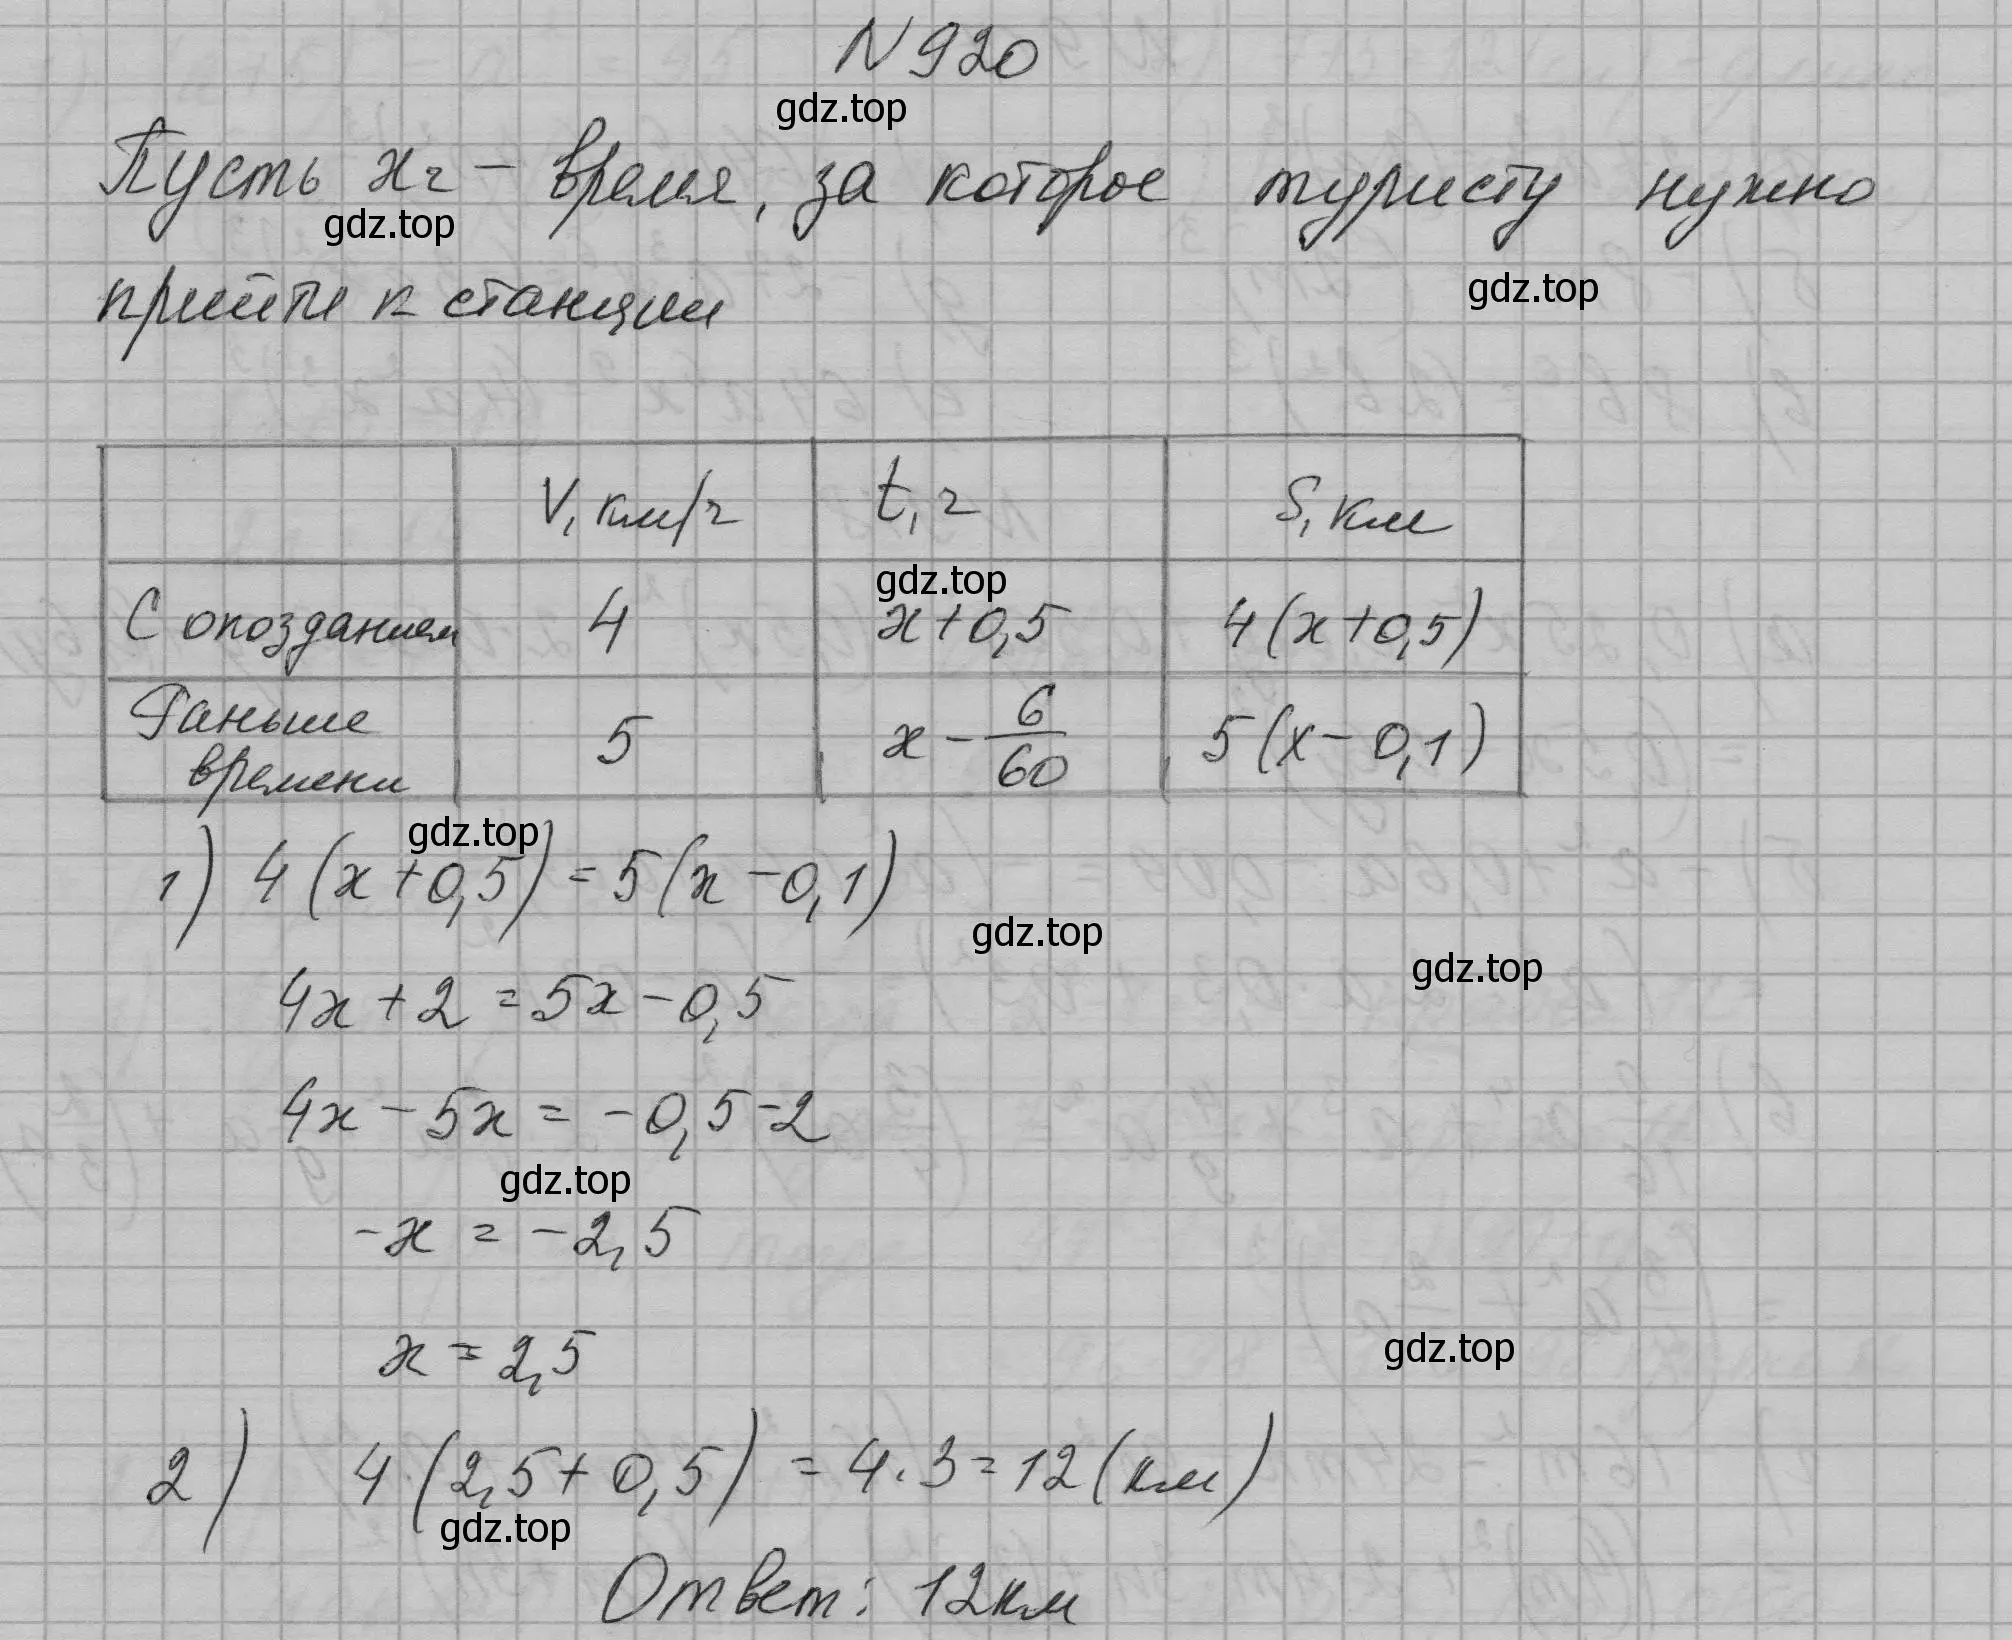 N 920
gdz.top
Пусть x ч – время, за которое туристу нужно
gdz.top
прийти к станции
gdz.top
V, км/ч t, ч S, км
gdz.top
С опозданием 4 x+0,5 4(x+0,5)
Раньше времени 5 x - 6/60 5(x-0,1)
gdz.top
1) 4(x+0,5) = 5(x-0,1)
gdz.top
gdz.top
4x+2 = 5x-0,5
4x-5x = -0,5-2
gdz.top
-x = -2,5
gdz.top
x = 2,5
2) 4(2,5+0,5) = 4·3=12 (км)
gdz.top
Ответ: 12 км